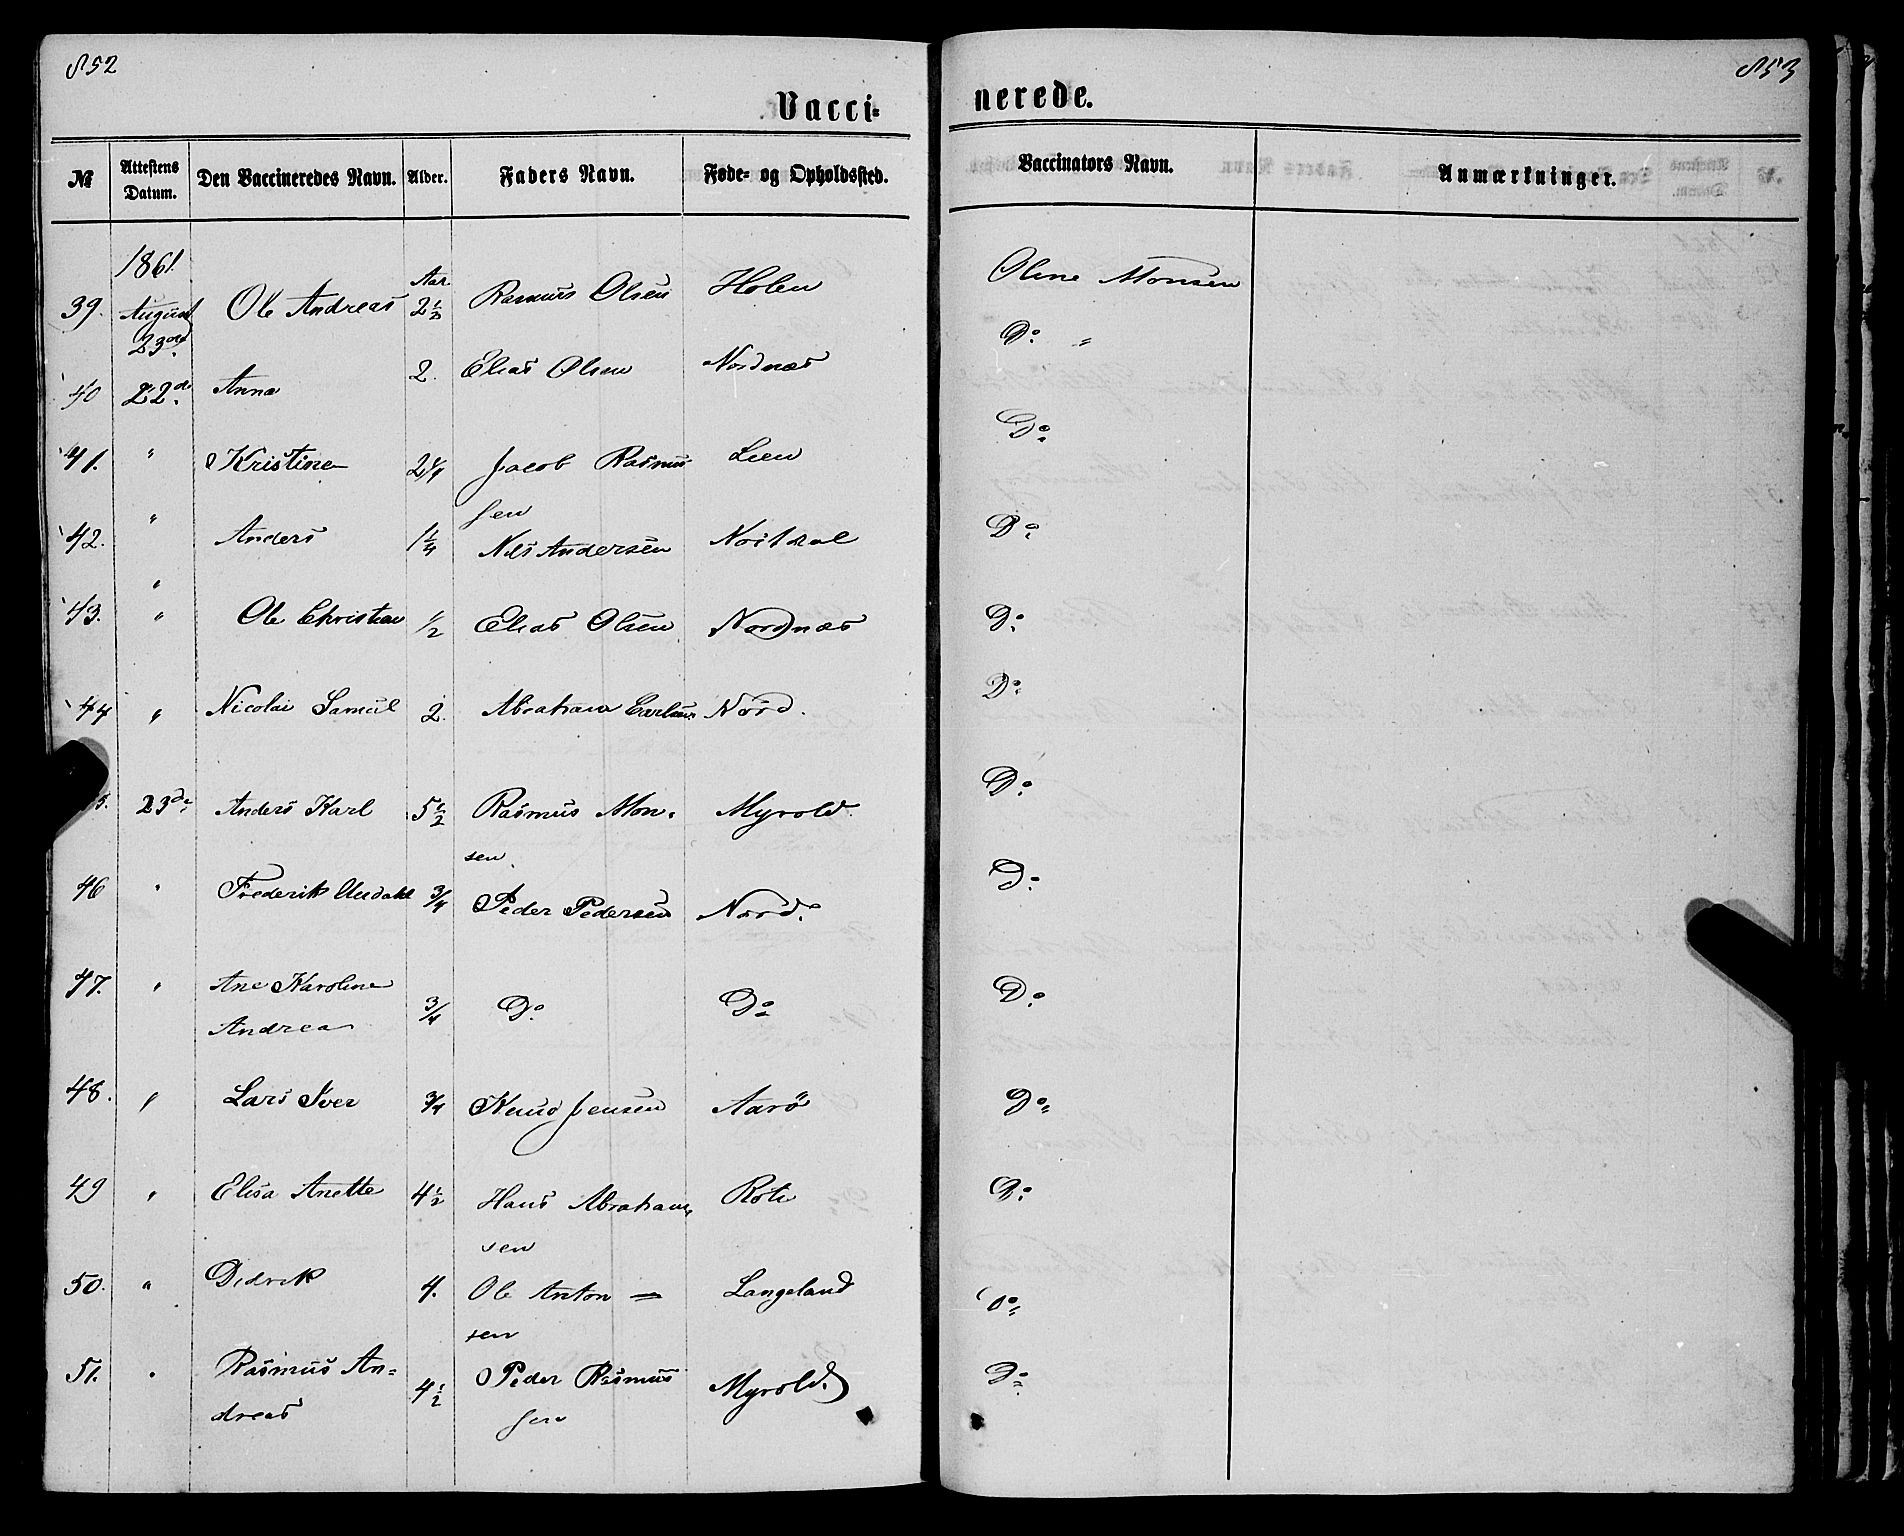 852
853
Vacci-
nerede.
№ Attestens Datum. Den Vaccineredes Navn. Alder. Faders Navn. Føde- og Opholdssted. Vaccinators Navn. Anmærkninger.
1861.
39. August 23de Ole Andreas Aar 2½ Rasmus Olsen Holen Olene Monsen
40 22de Anna 2. Elias Olsen Nordnæs Do "
41. " Kristine 2¼ Jacob Rasmus Leen Do
sen
42. " Anders 1¼ Nils Andersen Do
43. " Ole Christian ½ Elias Olsen Nordnæs Do
44 " Nicolai Samuel 2. Abraham Nord. Do
23de Anders Karl 5½ Rasmus Mon- Myrold Do
sen
46 " Frederik ¾ Peder Pedersen Nord. Do
47. " Ane Karoline
Andrea ¾ Do Do Do
48. " Lars Iver ¾ Knud Jensen Aarö Do
49 " Elisa Anette 4½ Hans Abraham- Do
sen
50. " Didrik 4. Ole Anton = Langeland Do
sen
51. " Rasmus An=
dreas 4½ Peder Rasmus Myrold. Do
sen